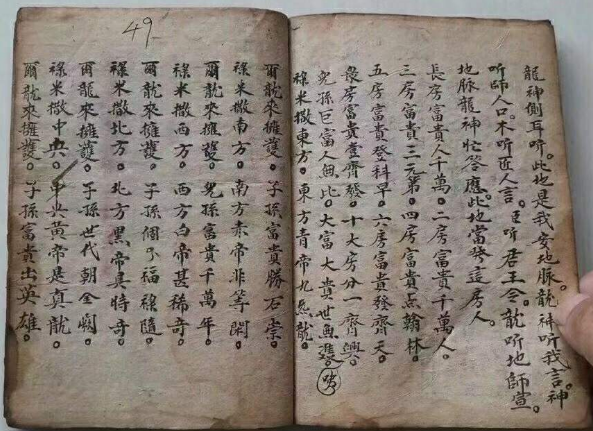 龍神側耳听。此也是我安地脉龍。神听我言神
听師人口。木听匠人言。臣听君王令。龍听地師宣。
地脉龍神忙答應。此地當發這房人。
長房富貴人千萬。二房富貴千萬人。
三房富貴三元第。四房富貴点翰林。
五房富貴登科早。六房富貴發齊天。
房富貴齊發。十大房分一齊興。
兒孫巨富人無比。大富大貴世無
祿米撒東方。東方青帝九炁龍。
爾龍來擁護。子孫富貴勝石崇。
祿米撒南方。南方赤帝非等閒
爾龍來擁護。兒孫富貴千萬年。
祿米撒西方。西方白帝甚稀奇。
爾龍來擁護。子孫個个福祿隨。
祿米撒北方。北方黑帝真時奇。
爾龍來擁護。子孫世代朝金闕。
祿米撒中央。中央黃帝是真龍。
爾龍來擁護。子孫富貴出英雄。
49